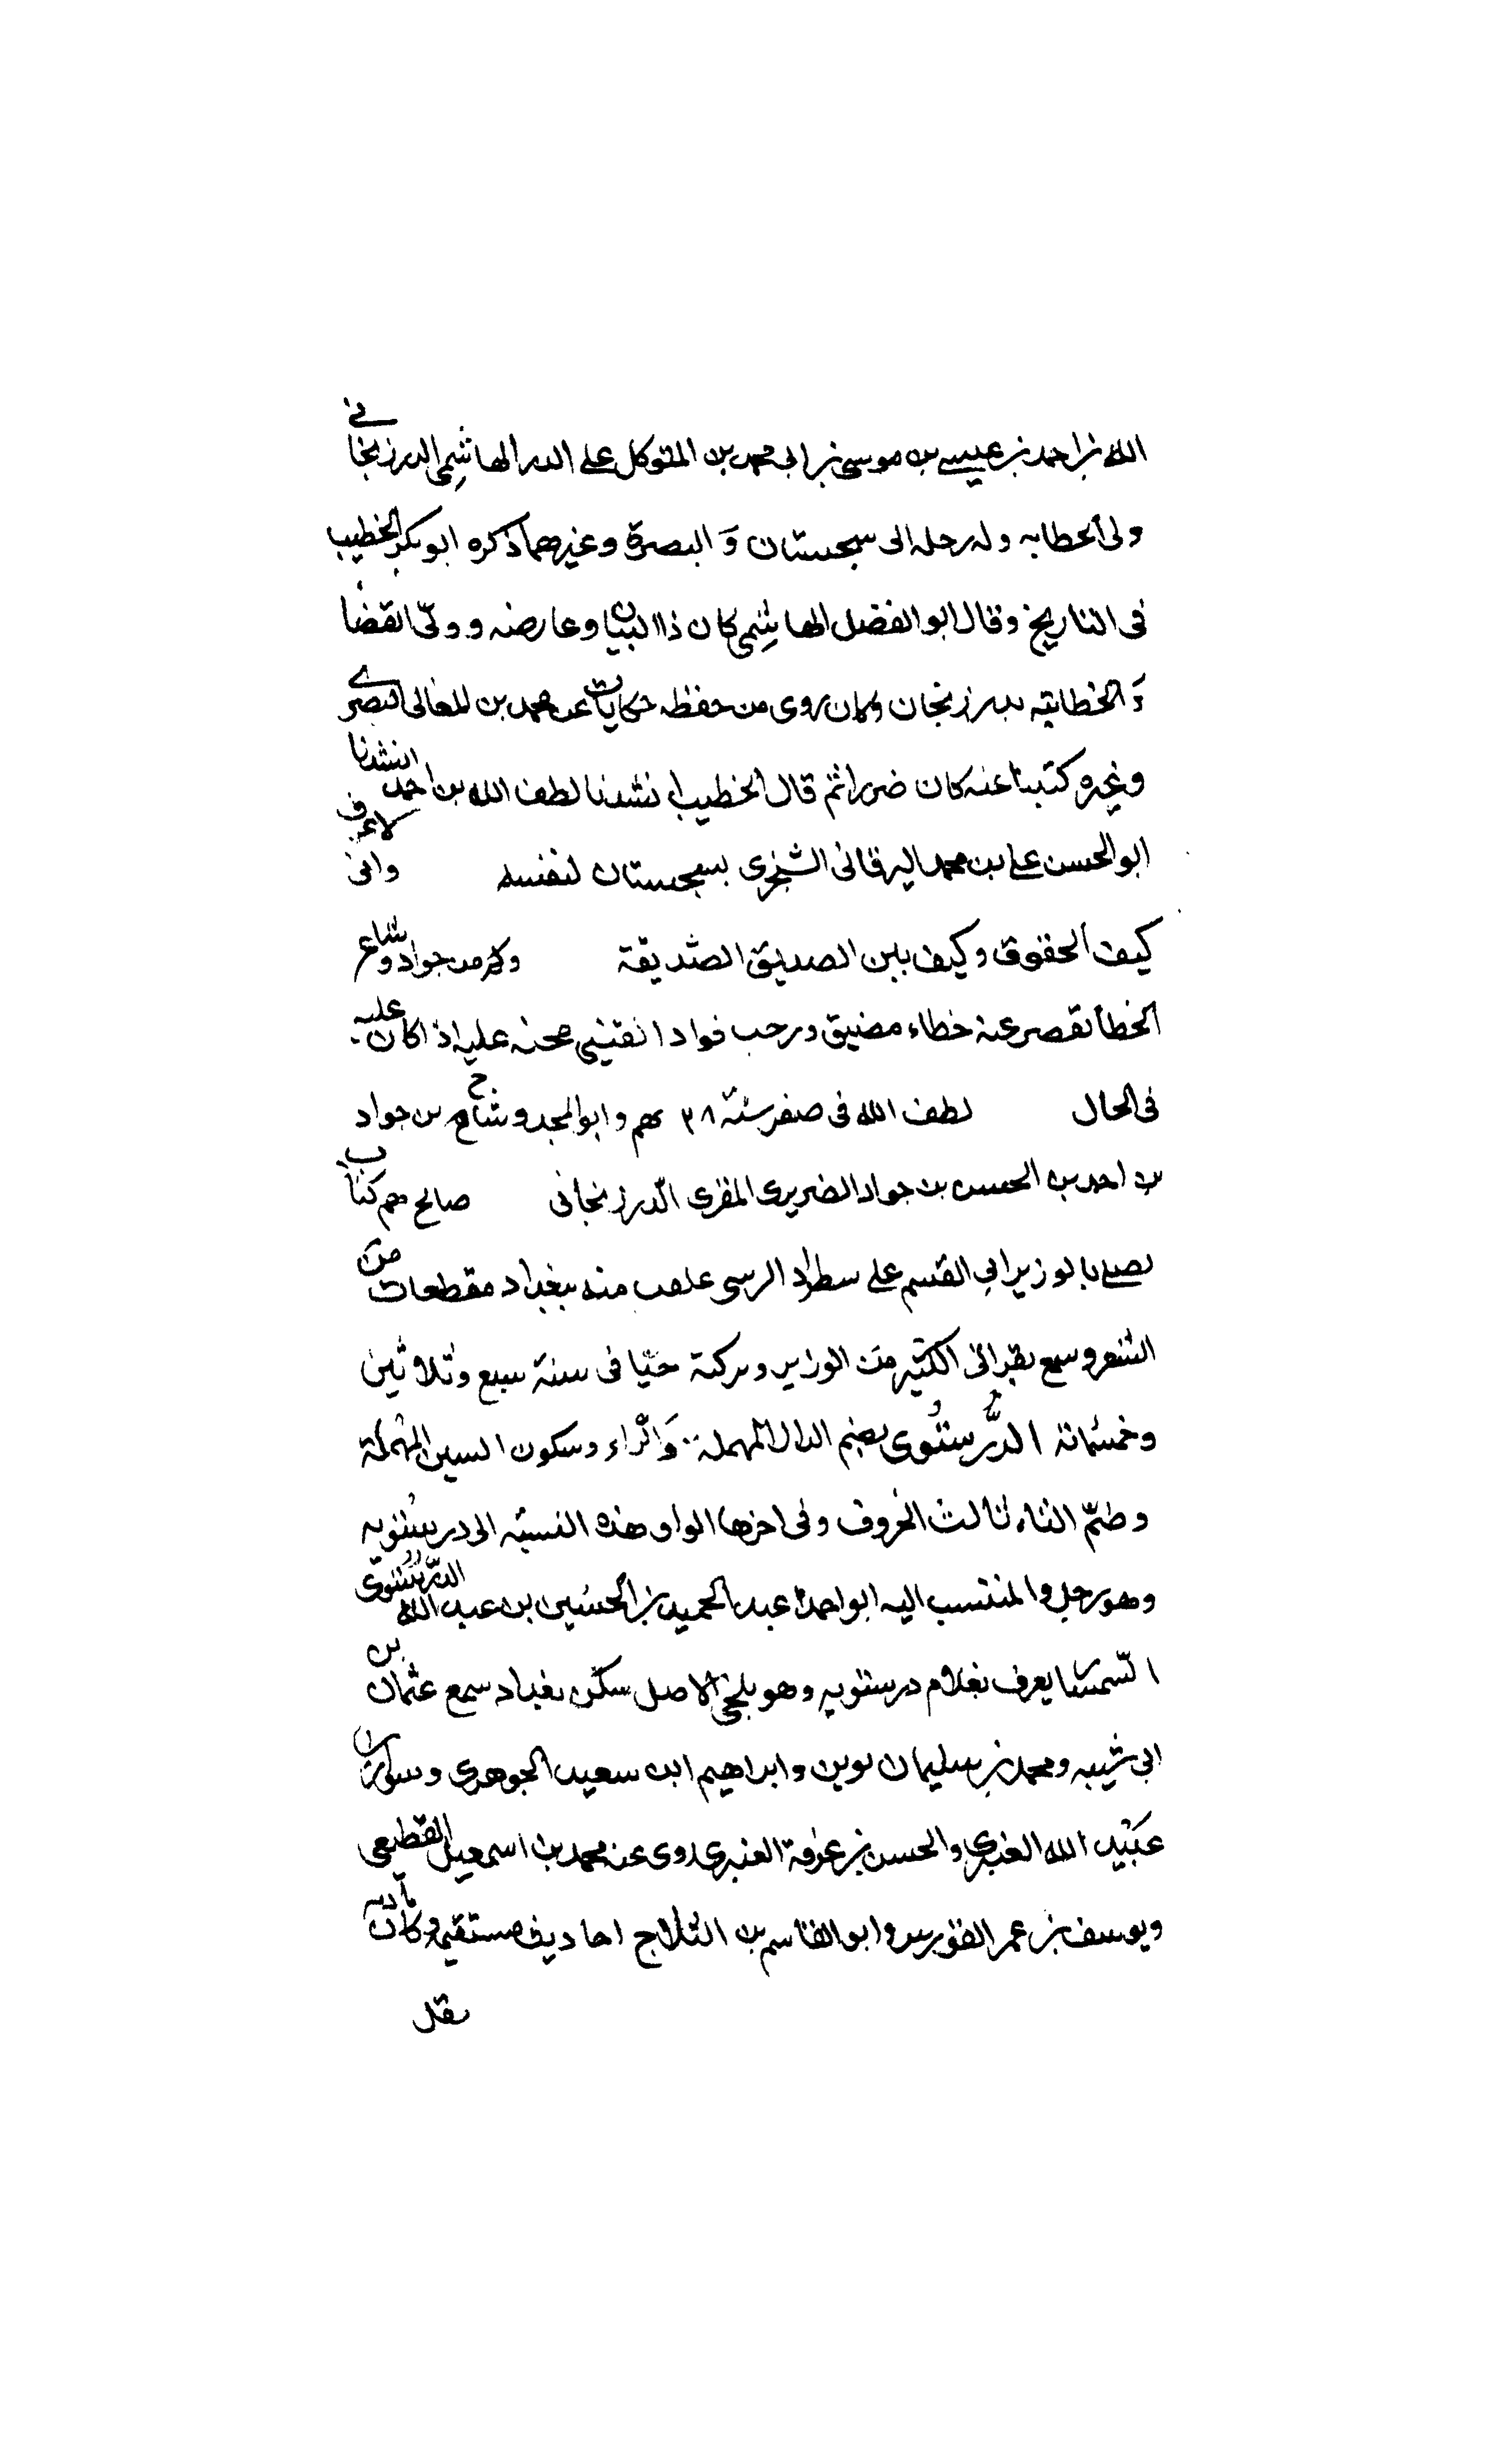 الله بن احمد بن عيسى بن موسى بن ابى محمد بن المتوكل على الله الهاشمى الدرزنجانى
ولى الخطابه وله رحله الى سجستان وَ البصرة وغيرهما ذكره ابو بكر الخطيب
فى التاريخ وقال ابو الفضل الهاشمى كان ذا البيان وعارضه وولّى القضا
ءَ الخطابته بدرزنجان وكان يروى من حفظه حكايات عن محمد بن المعالى البصرى
وغيره كتبنا عنه كان ضريرا ثم قال الخطيب انشدنا لطف الله بن احمد انشدنا
ابو الحسن على بن محمد اليرقانى الشجرى بسجستان لنفسه وانى لاعرف
كيف الحقوق وكيف يبن الصديق الصديقة وكم من جواد وساع
الخطا تقصر عنه خطاء مضيق ورحب فواد انفتنى محنه عليه اذا كان عليه
فى الحال لطف الله فى صفر سنة ٣٨ ٤م وابو المجد وشاح بن جواد
بن احمد بن الحسن بن جواد الضريرى المقرى الدرزنجانى صالح مهم كتاب
يصلى بالوزير ابى القسم على بن طراد الرسى علقت منه ببغداد مقطعات من
الشعر وسمع بقراتى الكثير من الوزير وبركته حيا فى سنة سبع وثلاثين
وخمسمائة الدُّرُستُوى بضم الدال المهملة وَالرّاء وسكون السين المهملة
وضمّ التاء ثالث الحروف وفى اخرها الواو هذه النسبه الى درستويه
وهو رجل والمنتسب اليه ابو احمد عبد الحميد بن الحسين بن عبد الله الدرستوى
السمسا يعرف بغلام درستويه وهو بلخى الاصل سكن بغداد سمع عثمان بن
ابى شيبه ومحمد بن سليمان لوين وابراهيم ابن سعيد الجوهرى وسوار بن
عبيد الله العنبرى والحسن بن عرفة العنبرى روى عنه محمد بن اسمعيل القطيعى
ويوسف بن عمر القواس وابو القاسم بن الثلاج احاديث مستقيمه وكانت
نقل